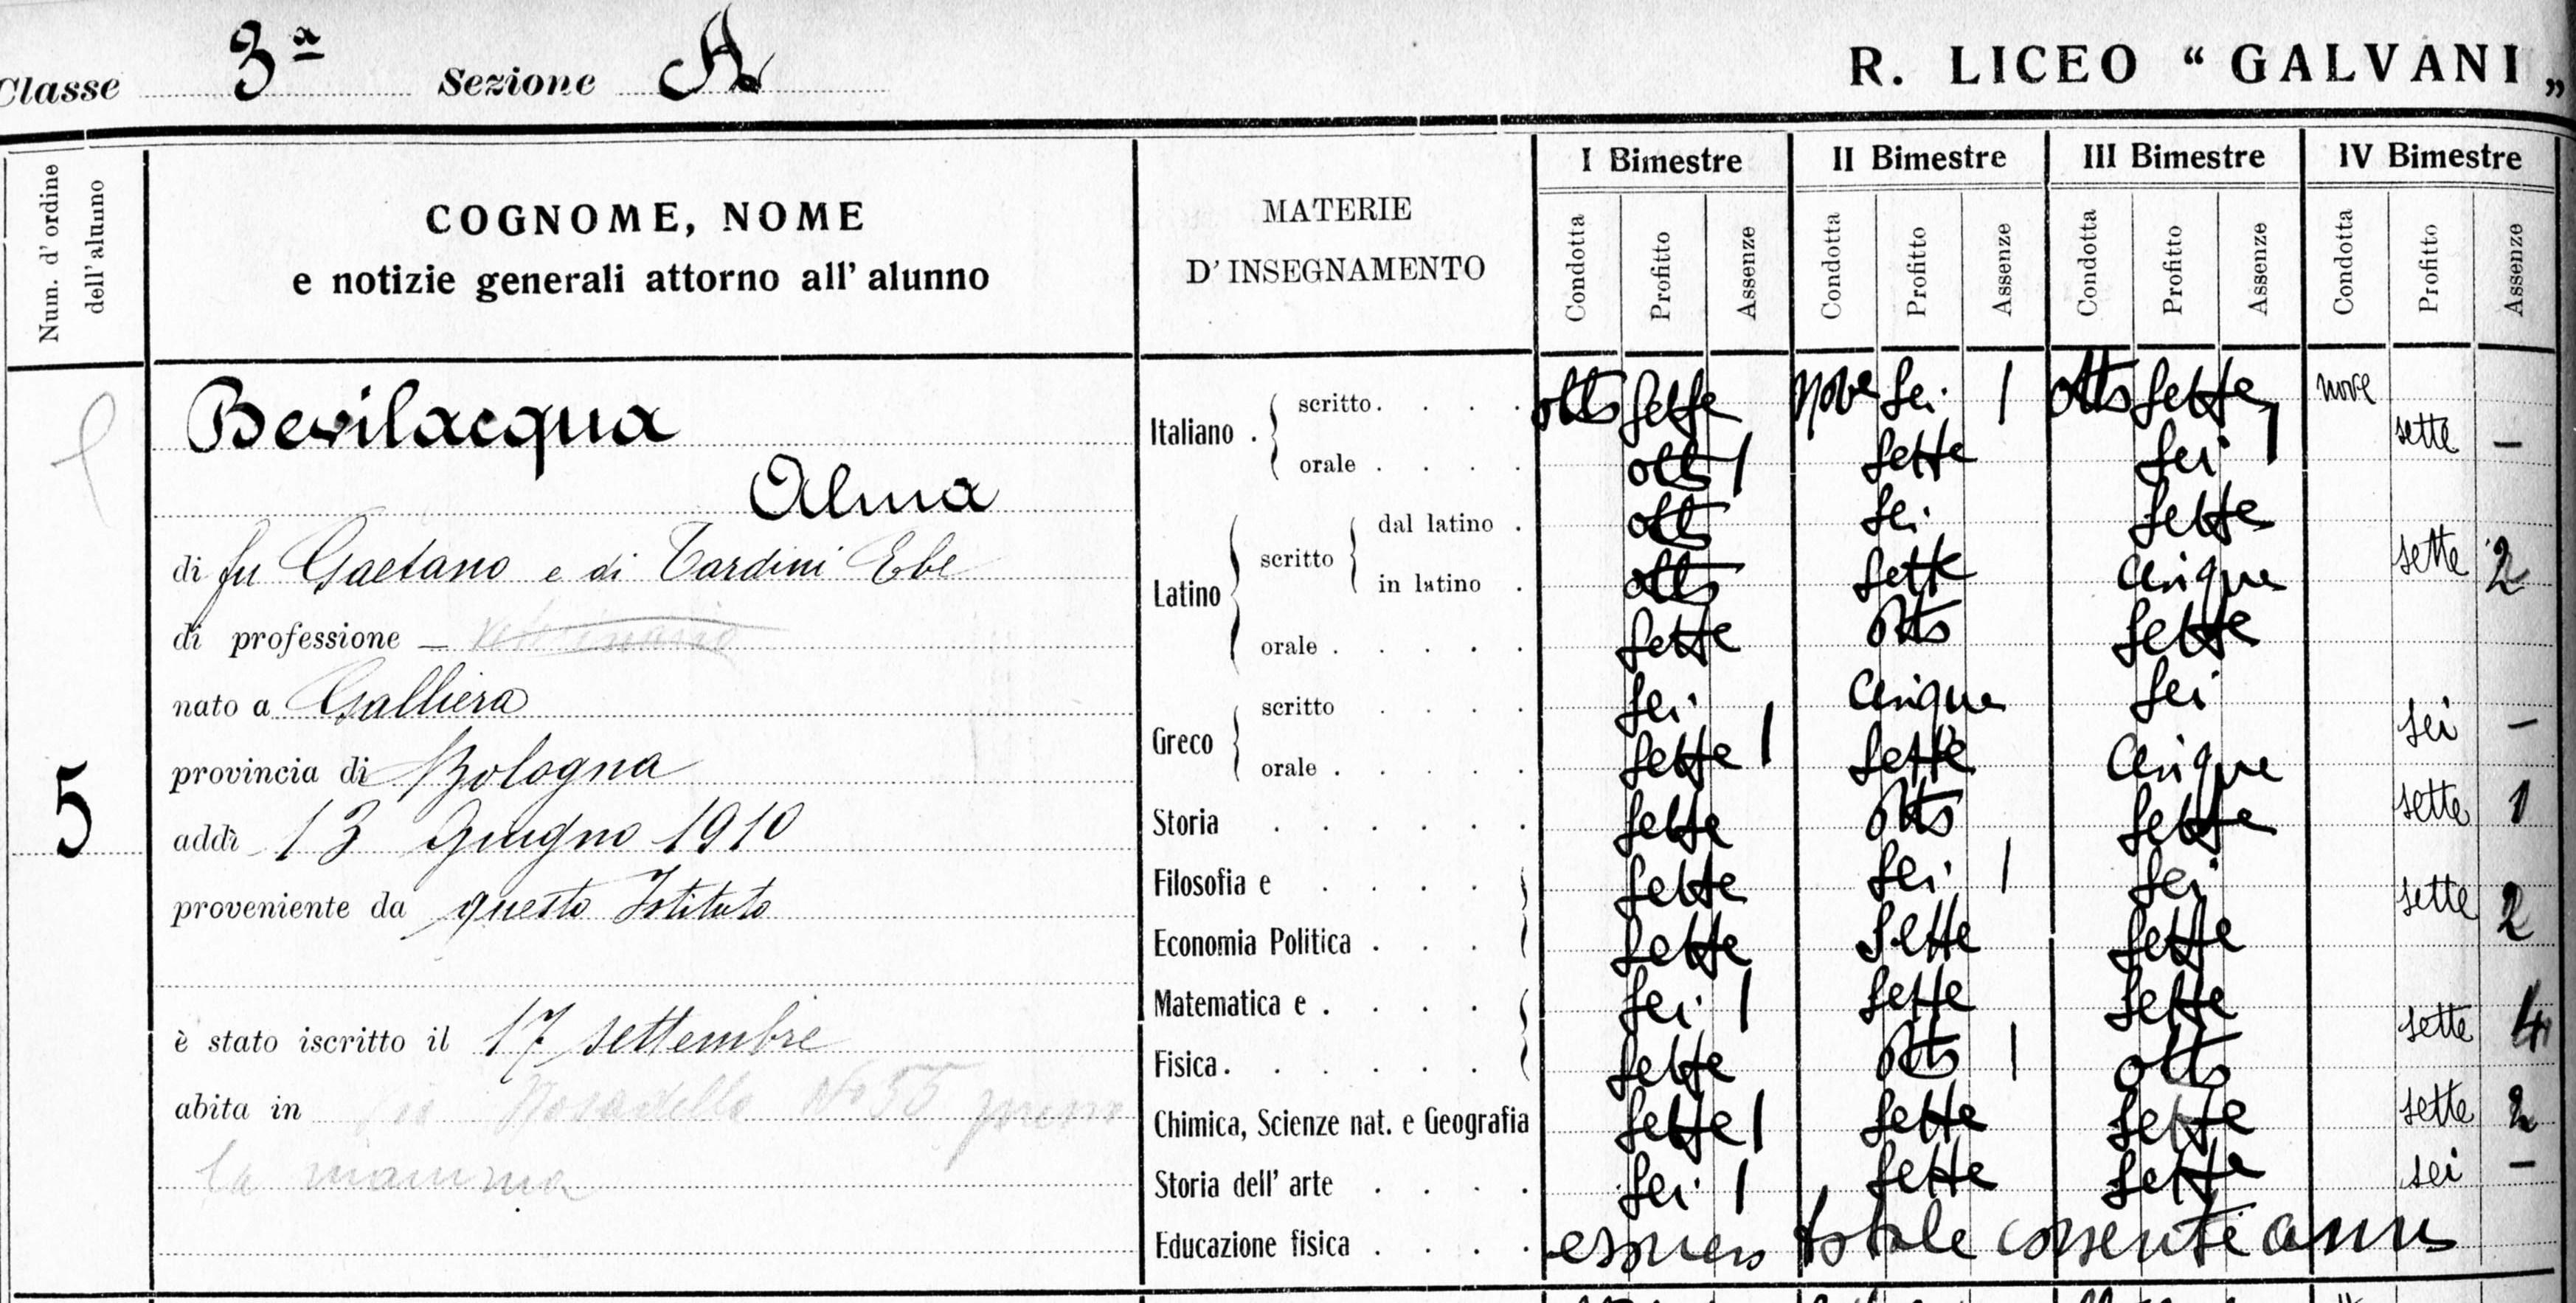 Classe 3ª Sezione A R. LICEO “ GALVANI „
Num. d' ordine dell' alunno
COGNOME, NOME
e notizie generali attorno all' alunno
MATERIE
D' INSEGNAMENTO
I Bimestre II Bimestre III Bimestre IV Bimestre
Condotta Profitto Assenze Condotta Profitto Assenze Condotta Profitto Assenze Condotta Profitto Assenze
5
Bevilacqua
Alma
di fu Gaetano e di Tardini Ebe
di professione — veterinario
nato a Galliera
provincia di Bologna
addì 13 Giugno 1910
proveniente da questo Istituto
è stato iscritto il 17 settembre
abita in No 55 presso
la mamma
Italiano . scritto. otto sette nove sei 1 otto sette 1 nove
orale . otto 1 sette sei sette —
Latino scritto dal latino . otto sei sette
in latino . otto sette cinque sette 2
orale . sette otto sette
Greco scritto sei cinque sei
orale . sette 1 sette cinque sei —
Storia sette otto sette sette 1
Filosofia e sette sei 1 sei
Economia Politica . sette sette sette sette 2
Matematica e . sei 1 sette sette
Fisica . sette otto 1 otto sette 4
Chimica, Scienze nat. e Geografia sette 1 sette sette sette 2
Storia dell' arte sei 1 sette sette sei —
Educazione fisica . esonero totale corrente anno